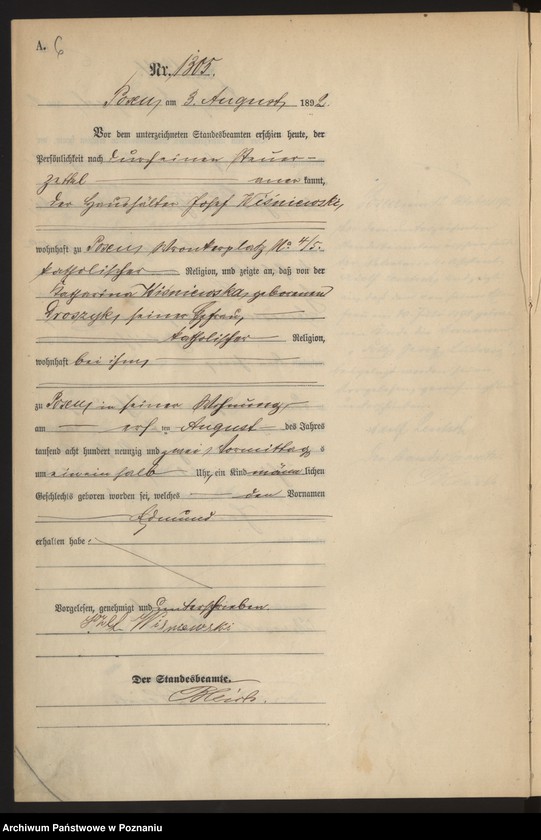 A. 6
Nr. 1305.
Posen, am 3. August 1892.
Vor dem unterzeichneten Standesbeamten erschien heute, der
Persönlichkeit nach durch einen Steuer-
zettel anerkannt,
der Haushälter Josef Wiśniewski,
wohnhaft zu Posen, Wronkerplatz No 4/5.
katholischer Religion, und zeigte an, daß von der
Katharina Wiśniewska, geborenen
Droszyk, seiner Ehefrau,
katholischer Religion,
wohnhaft bei ihm,
zu Posen, in seiner Wohnung,
am ersten August des Jahres
tausend acht hundert neunzig und zwei Vormittags
um eineinhalb Uhr, ein Kind männlichen
Geschlechts geboren worden sei, welches den Vornamen
Edmund
erhalten habe.
Vorgelesen, genehmigt und unterschrieben.
Józef Wiśniewski
Der Standesbeamte.
Archiwum Państwowe w Poznaniu